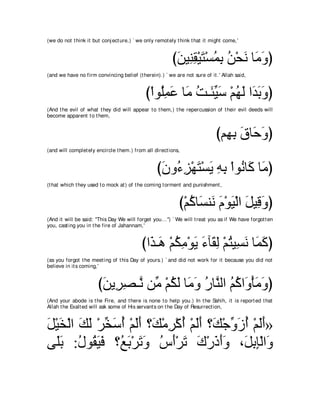 (we do not think it but conjecture,) ` we only remotely think that it might come,'
(وَمَا نَحْنُ بِمُسْتَيْقِنِينَ)
(and we have no firm convincing belief (therein).) ` we are not sure of it.' Allah said,
(وَبَدَا لَهُمْ سَيِّئَـتُ مَا عَمِلُواْ)
(And the evil of what they did will appear to them,) the repercussion of their evil deeds will
become apparent to them,
(وَحَاقَ بِهِم)
(and will completely encircle them.) from all directions,
(مَّا كَانُواْ بِهِ يَسْتَهْزِءُونَ)
(that which they used to mock at) of the coming torment and punishment,
(وَقِيلَ الْيَوْمَ نَنسَاكُمْ)
(And it will be said: "This Day We will forget you...'') `We will treat you as if We have forgotten
you, casting you in the fire of Jahannam,'
(كَمَا نَسِيتُمْ لِقَآءَ يَوْمِكُمْ هَـذَا)
(as you forgot the meeting of this Day of yours.) ` and did not work for it because you did not
believe in its coming,'
(وَمَأْوَاكُمُ النَّارُ وَمَا لَكُمْ مِّن نَّـصِرِينَ)
(And your abode is the Fire, and there is none to help you.) In the Sahih, it is reported that
Allah the Exalted will ask some of His servants on the Day of Resurrection,
«أَلَمْ أُزَوِّجْكَ؟ أَلَمْ أُكْرِمْكَ؟ أَلَمْ أُسَخِّرْ لَكَ الْخَيْلَ
وَالْإِبِلَ، وَأَذَرْكَ تَرْأَسُ وَتَرْبَعُ؟ فَيَقُولُ: بَلَى